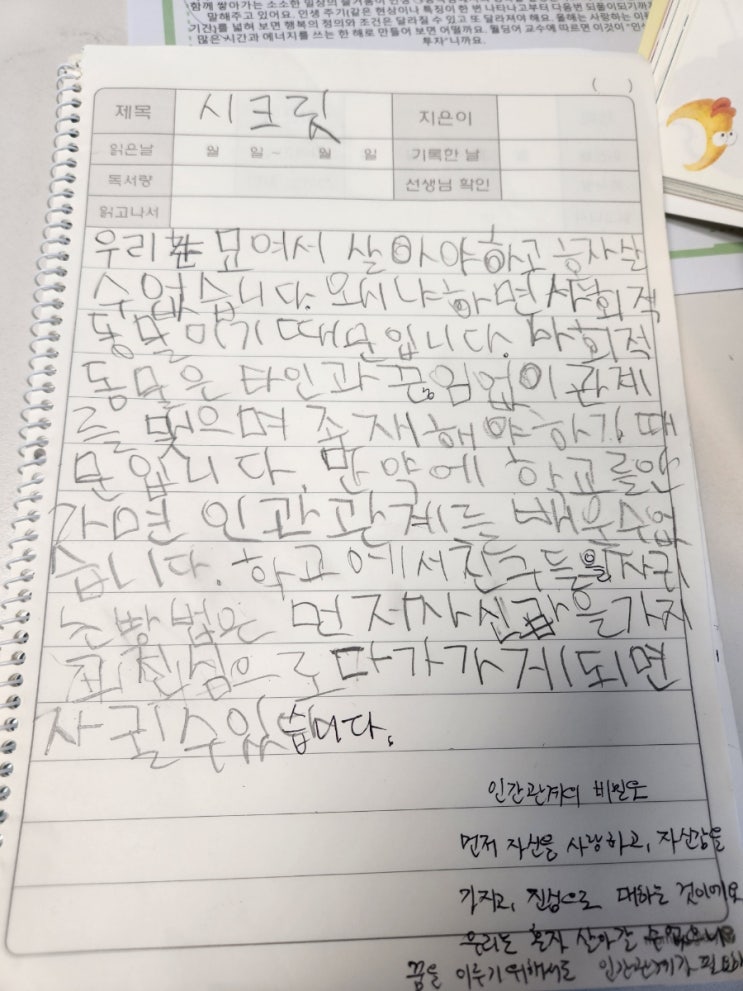 함께 쌓아가는 소소한 일상의 즐거움이 인생
말해주고 있어요. 인생 주기(같은 현상이나 특징이 한 번 나타나고부터 다음번 되풀이되기까지
기간)를 넓혀 보면 행복의 정의와 조건은 달라질 수 있고 또 달라져야 해요. 올해는 사랑하는 이와
많은 시간과 에너지를 쓰는 한 해로 만들어 보면 어떨까요. 월딩어 교수에 따르면 이것이 "인생
투자"니까요.
( )
제목 시크릿 지은이
읽은날 월 일 ~ 월 일 기록한 날
독서량 선생님 확인
읽고나서
우리는 모여서 살아야하고 혼자살
수 없습니다. 왜냐하면 사회적
동물이기 때문입니다. 사회적
동물은 타인과 끊임없이 관계
를 맺으며 존재해야하기 때
문입니다. 만약에 학교를안
가면 인관관계를 배울수없
습니다. 학교에서친구들을 사귀
는방법은 먼저자신감을가지
고 진심으로다가가게되면
사귈수있습니다.
인간관계의 비밀은
먼저 자신을 사랑하고, 자신감을
가지고, 진심으로 대하는 것이에요
우리는 혼자 살아갈 수 없으니
꿈을 이루기위해서도 인간관계가 필요해